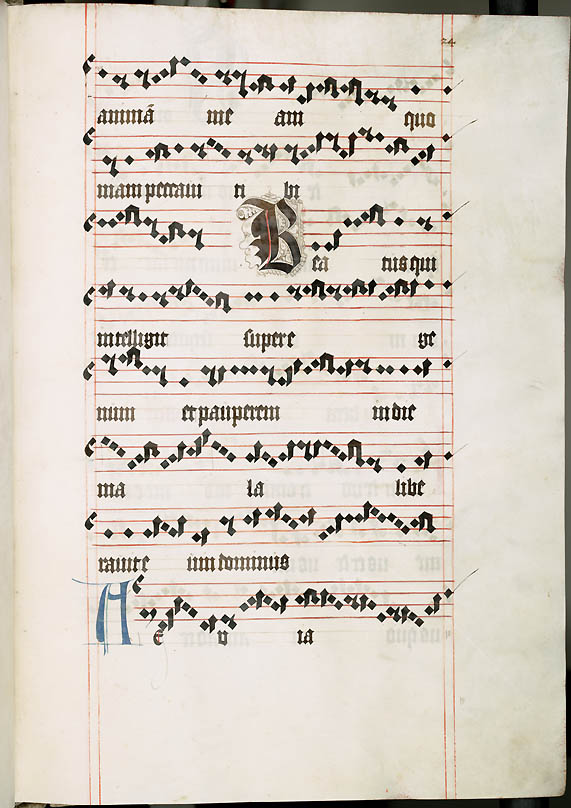 24
animā me am quo
niam peccavi ti bi
B ea tus qui
intelligit super e ge
num et pauperem in die
ma la libe
ravit e um dominus
A E v ia